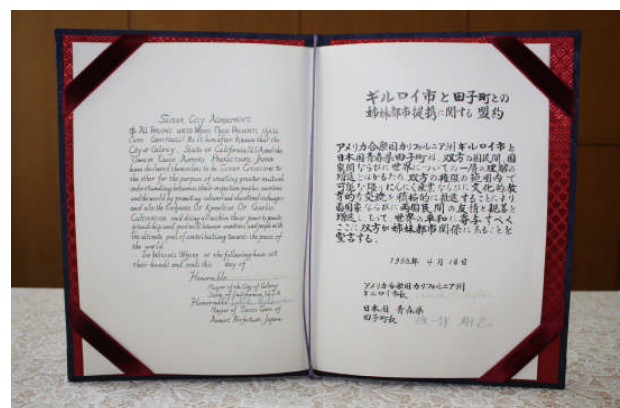 Sister City Agreement
To All Persons unto Whom These Presents Shall
Come Greetings: Be it hereafter known that the
City of Gilroy, State of California, U.S.A. and the
Town of Takko Aomori Prefecture, Japan
have declared themselves to be Sister Cities one to
the other for the purpose of creating greater mutual
understanding between their respective publics, countries
and the world by promoting cultural and educational exchanges
and also the
and doing all within their power to promote
friendship and good will between countries and people with
the ultimate goal of contributing towards the peace of
the world
In Witness Whereof the following have set
their hands and seals this day of
Honorable
Mayor of the City of Gilroy
State of California, U.S.A.
Honorable
Mayor of Takko Town of
Aomori Prefecture, Japan
ギルロイ市と田子町との
姉妹都市提携に関する盟約
アメリカ合衆国カリフォルニア州ギルロイ市と
日本国青森県田子町は、双方の国民間、国
家間ならびに世界についての一層の理解の
増進をはかるため、双方の権限の範囲内で
可能な限りにんにく産業ならびに文化的教
育的な交流を積極的に推進することにより
両国家ならびに両国民間の友情と親善を
増進し、もって世界の平和に寄与すべく
ここに双方が姉妹都市関係にあることを
宣言する。
1988年 4月18日
アメリカ合衆国カリフォルニア州
ギルロイ市長
日本国 青森県
田子町長